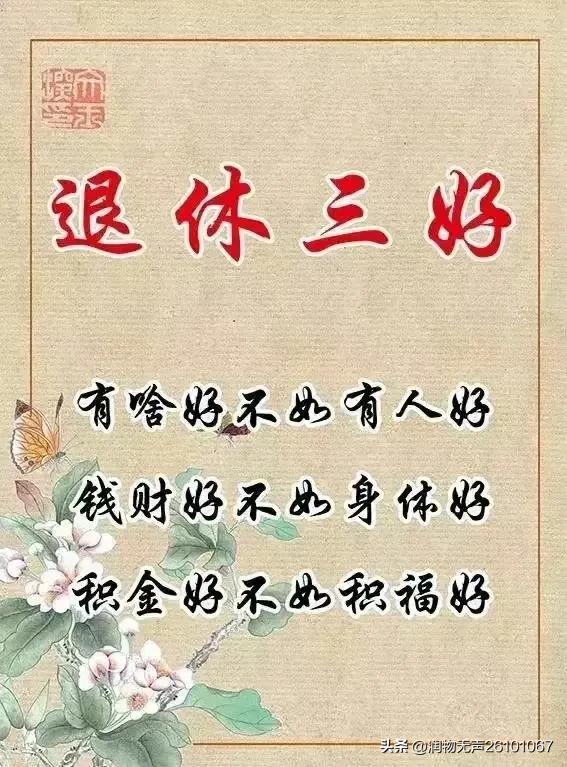 退休三好
有啥好不如有人好
钱财好不如身体好
积金好不如积福好
头条 @润物无声26101067